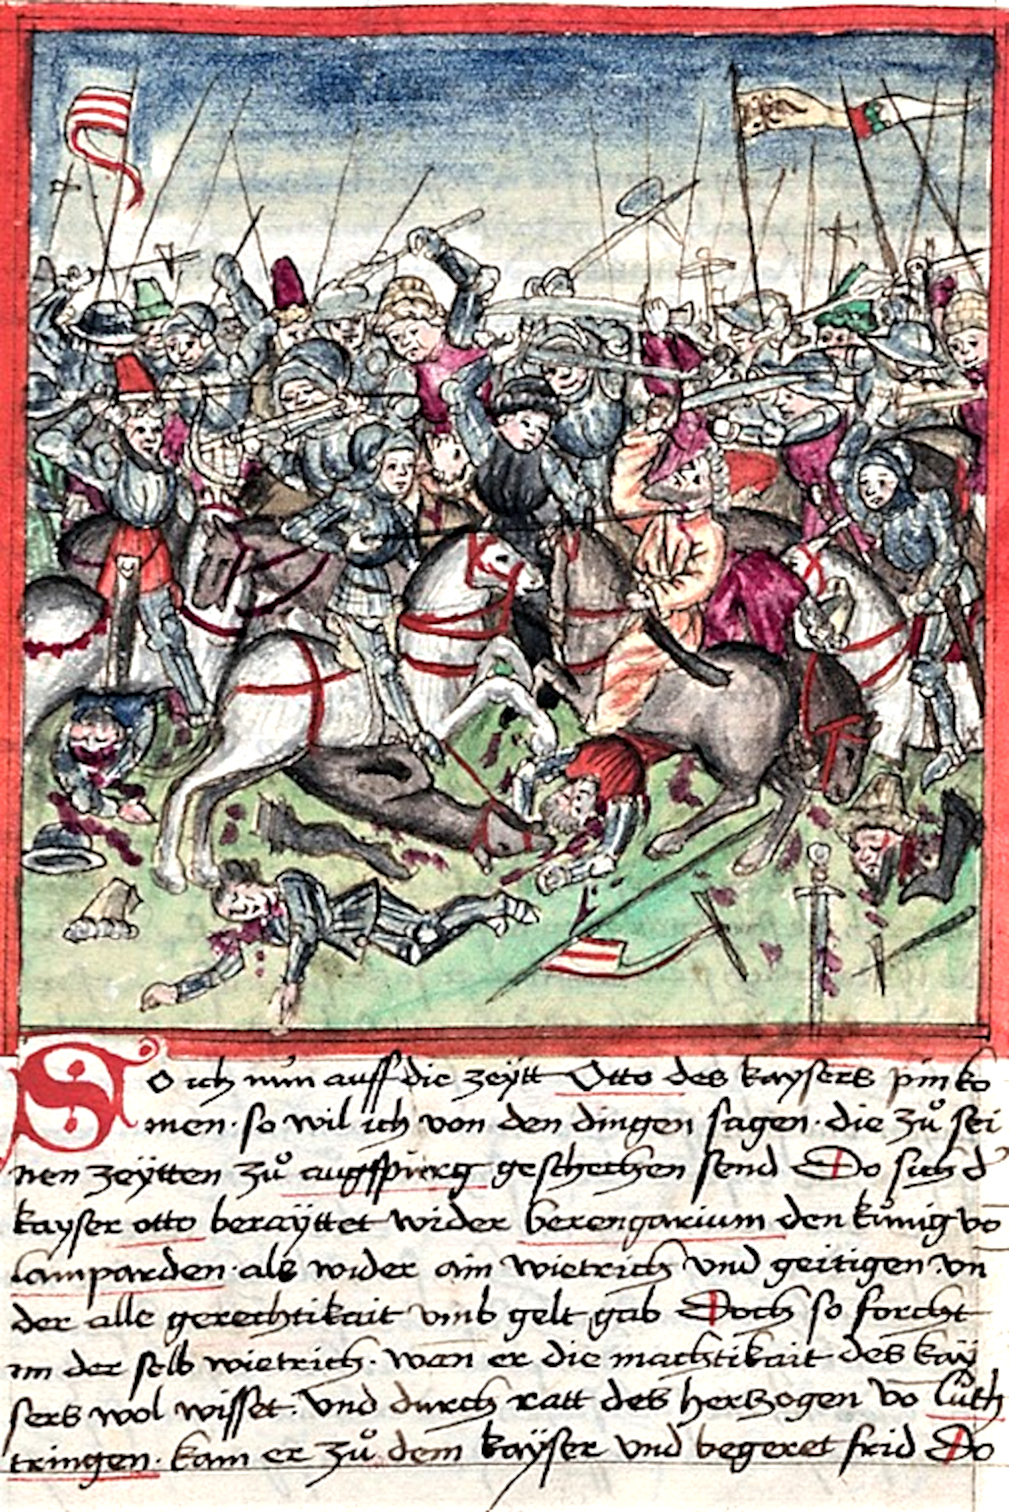 So ich nun auff die zeÿtt Otto des kaysers pin ko
men · so wil ich von den dingen sagen · die zů sei
nen zeÿtten zů augspurg geschechen send Do sich d'
kayser otto beraÿttet wider berengarium den kúnig vo
lamparden · als wider ain wietrich vnd geitigen · vn
der alle gerechtikait vmb gelt gab Doch so forcht
im der selb wietrich · wan er die machtikait des kaÿ
sers wol wisset · vnd durch ratt des hertzogen vo luth
tringen · kam er zů dem kaÿser vnd begeret frid Do